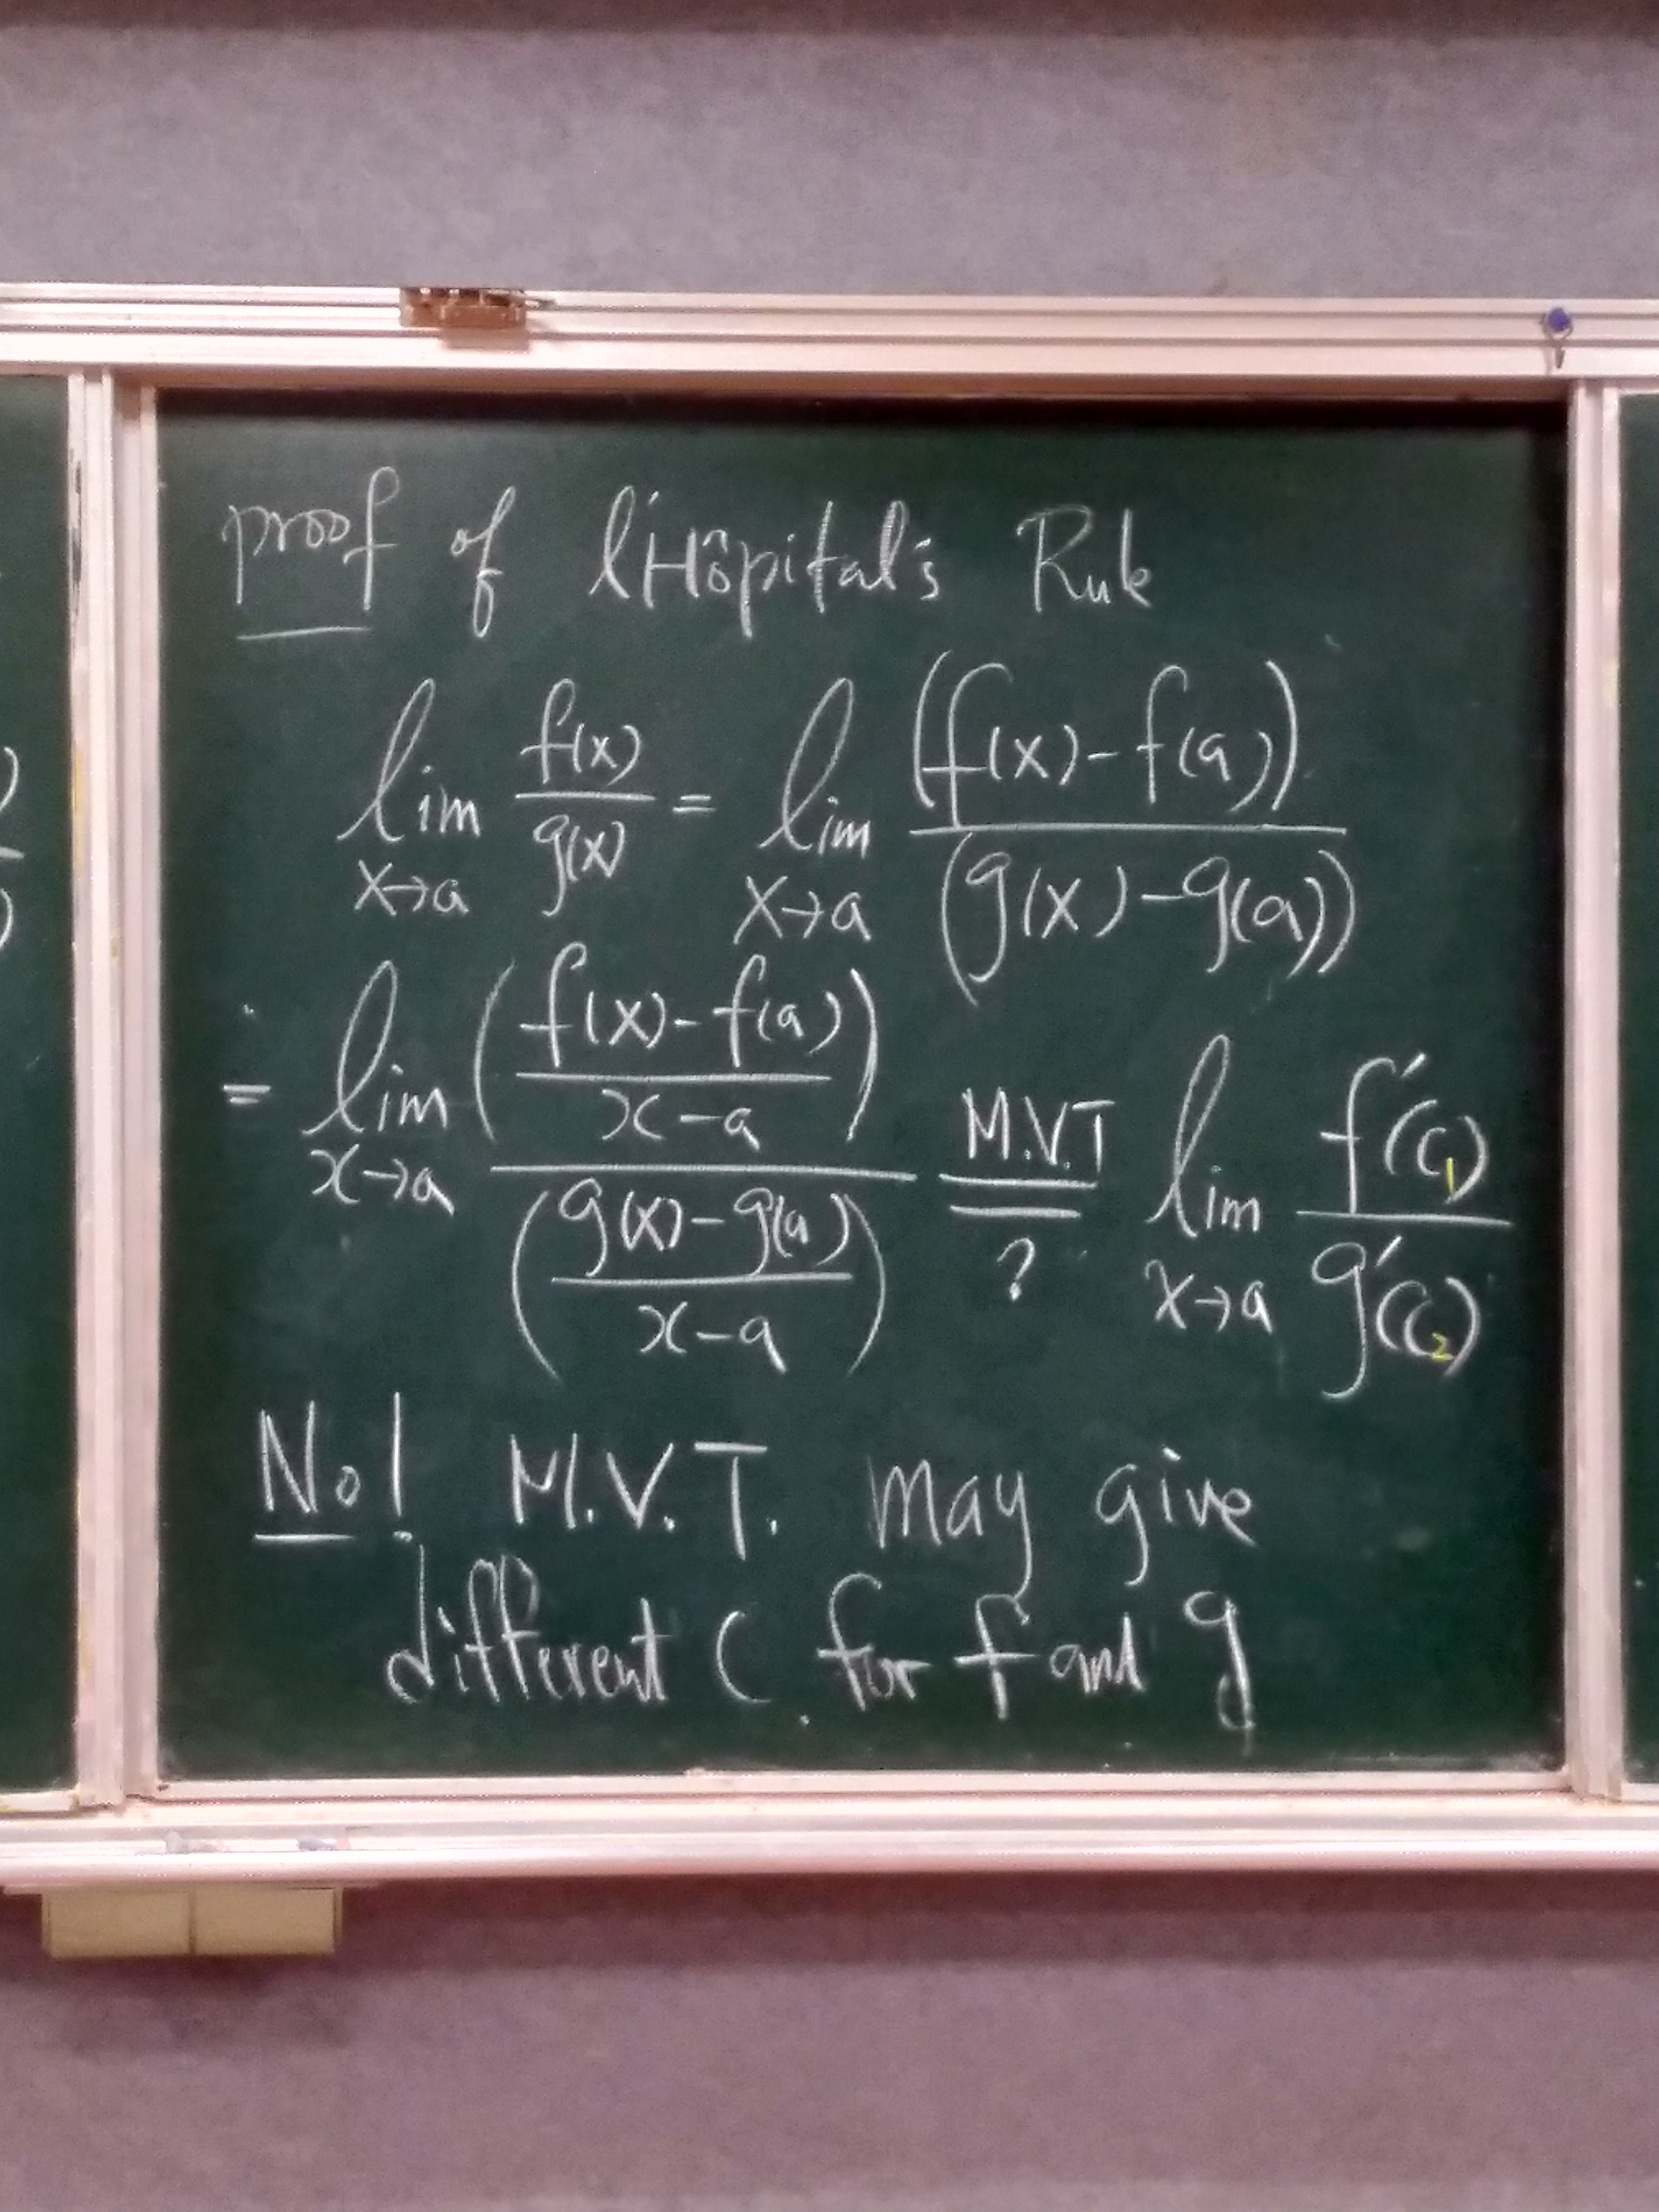 proof of l'Hôpital's Rule
lim x→a f(x)/g(x) = lim x→a (f(x)-f(a))/(g(x)-g(a))
= lim x→a ((f(x)-f(a))/(x-a))/((g(x)-g(a))/(x-a)) =M.V.T ? lim x→a f'(c₁)/g'(c₂)
No! M.V.T. may give
different C for f and g